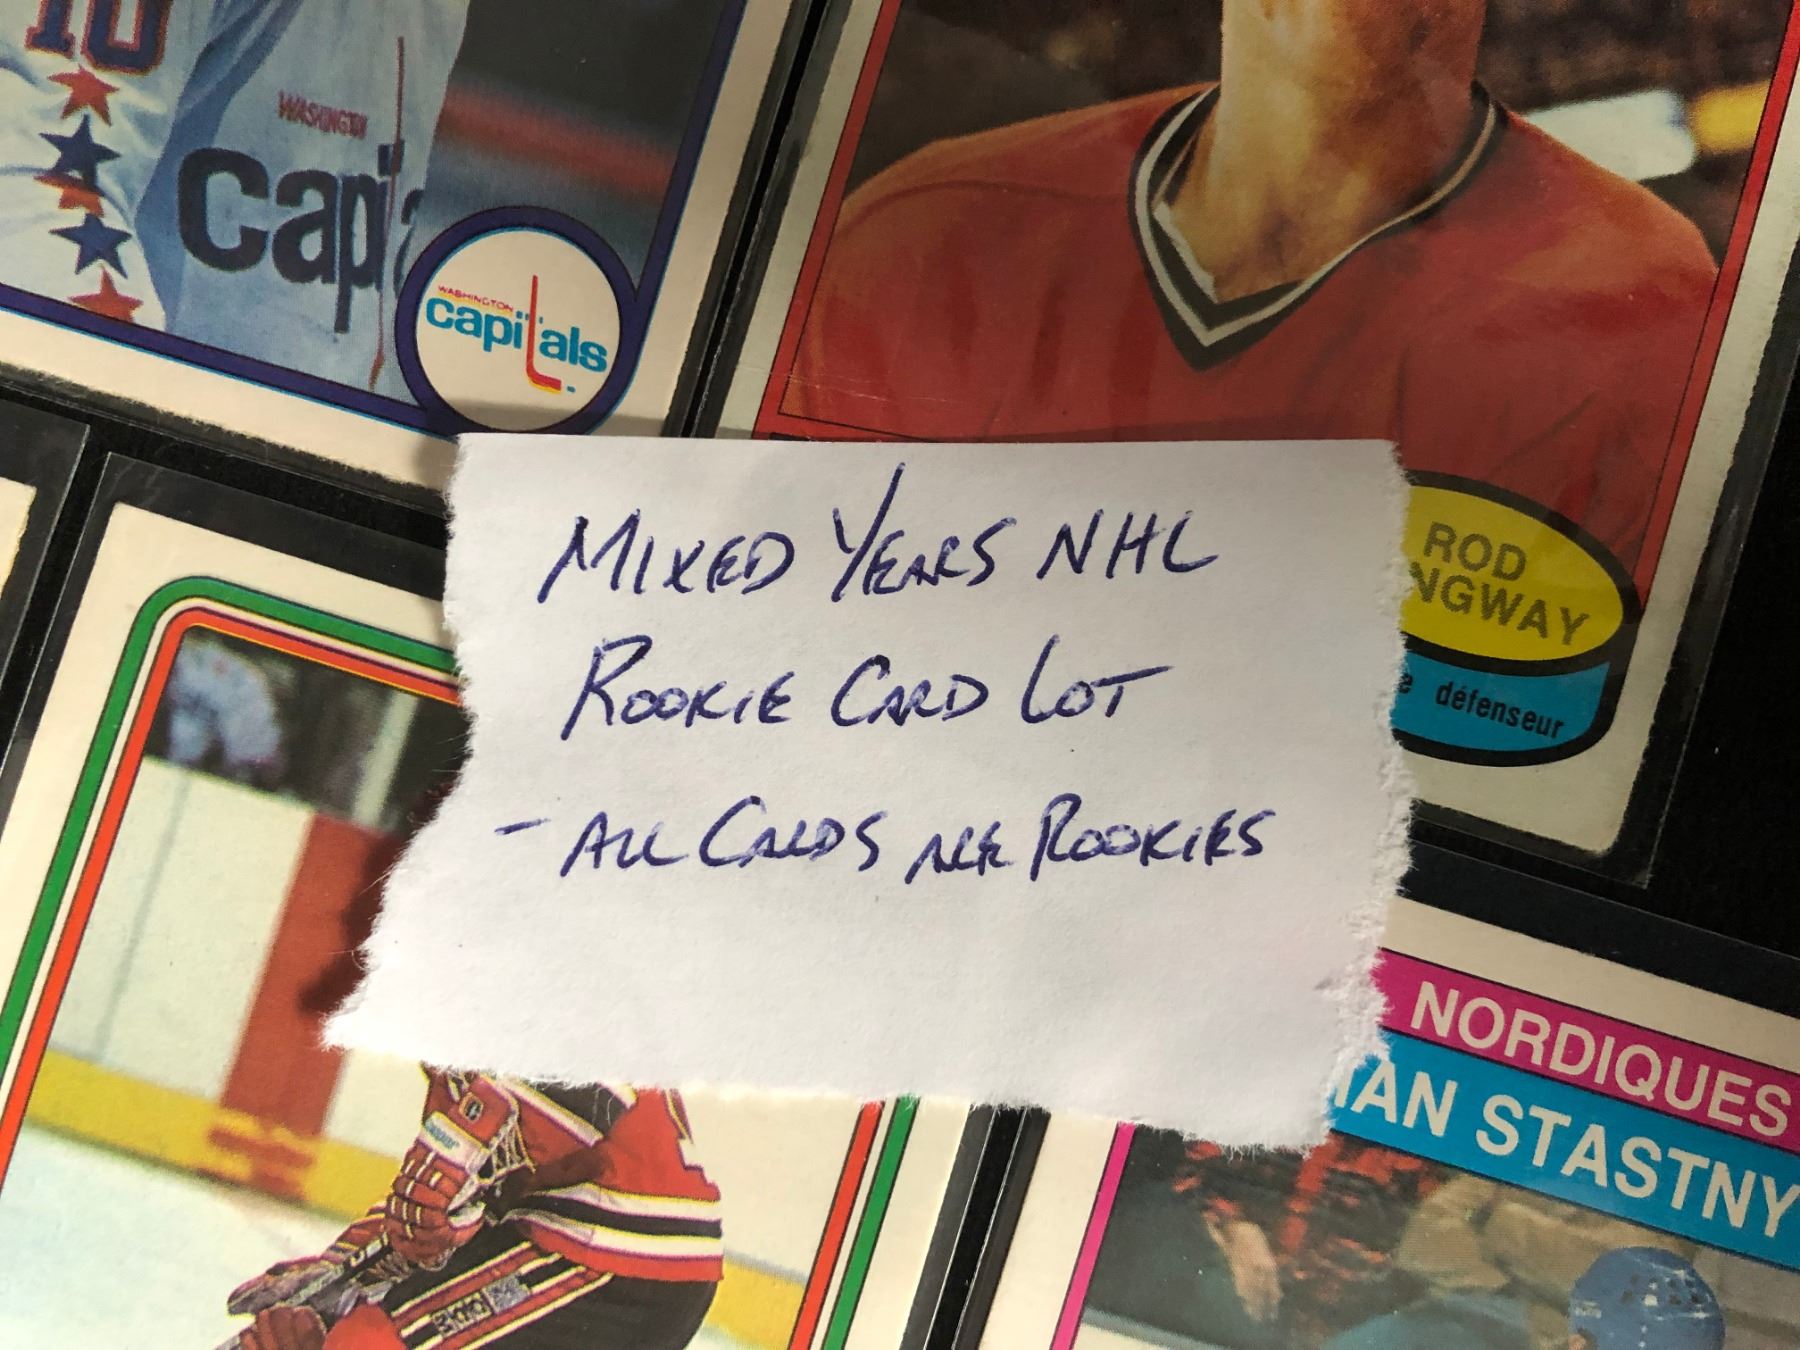 10
WASHINGTON
Capi
WASHINGTON
capitals
MIXED YEARS NHL
ROOKIE CARD LOT
- ALL CARDS ARE ROOKIES
ROD
NGWAY
défenseur
NORDIQUES
IAN STASTNY